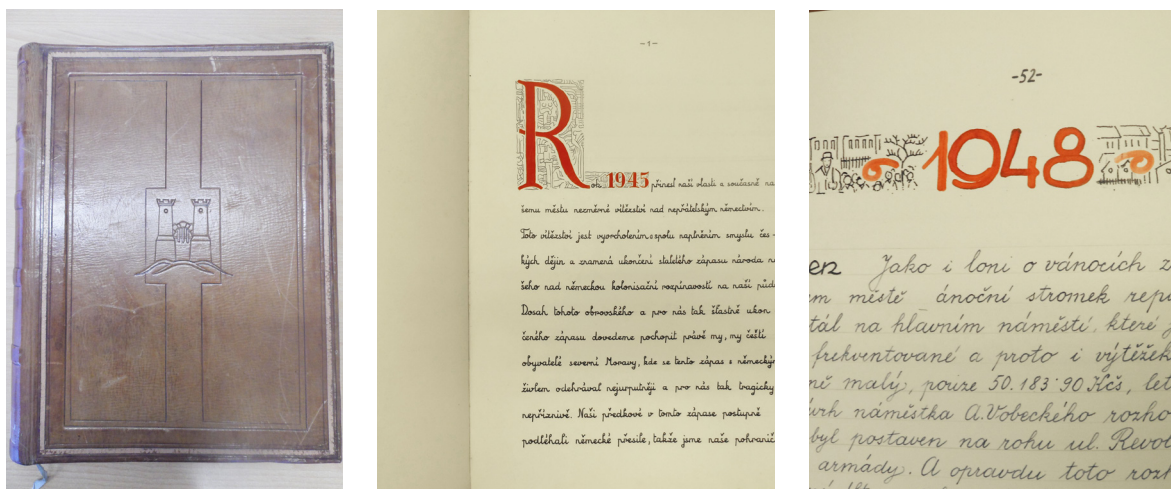 -1-
Rok 1945 přinesl naší vlasti a současně na
šemu městu nezměrné vítězství nad nepřátelským němectvím.
Toto vítězství jest vyvrcholením a spolu naplněním smyslu čes-
kých dějin a znamená ukončení staletého zápasu národa na
šeho nad německou kolonisační rozpínavostí na naší půdě
Dosah tohoto obrovského a pro nás tak šťastně ukon
čeného zápasu dovedeme pochopit právě my, my čeští
obyvatelé severní Moravy, kde se tento zápas s německým
živlem odehrával nejurputněji a pro nás tak tragicky
nepříznivě. Naši předkové v tomto zápase postupně
podléhali německé přesile, takže jsme naše pohranič
-52-
1948
Jako i loni o vánocích z
em městě ánoční stromek repu
tál na hlavním náměstí, které
frekventované a proto i výtěžek
ně malý, pouze 50.183·90 Kčs, let
vrh náměstka A. Vobeckého rozho
byl postaven na rohu ul. Revol
armády. A opravdu toto rozh